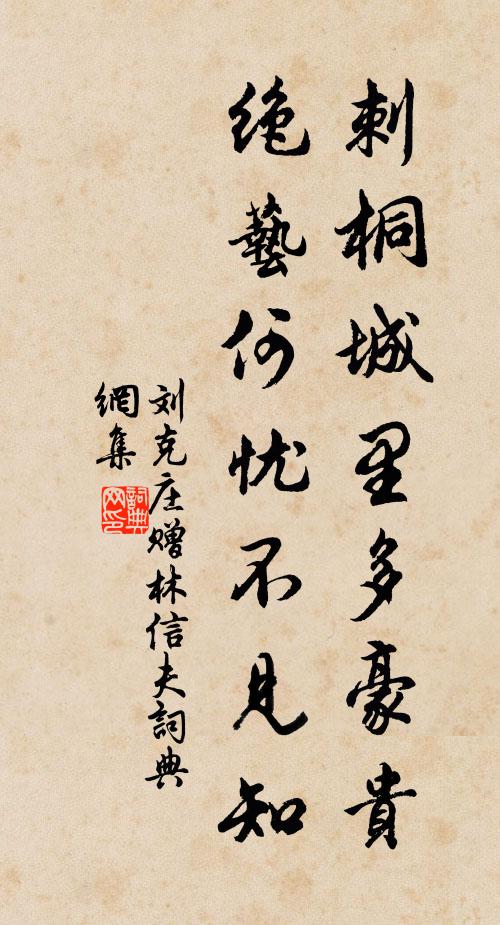 刺桐城里多豪貴
绝藝何忧不見知
刘克庄赠林信夫詞典
網集
詞典
网印